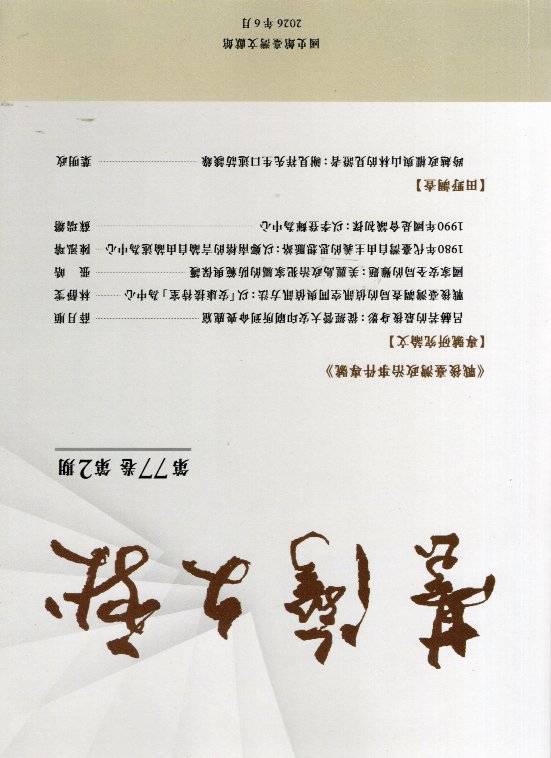 臺灣文獻
第77卷 第2期
《戰後臺灣政治事件專號》
【專號研究論文】
呂赫若的最後身影:從經營大安印刷所到命喪鹿窟 薛月順
戰後臺灣調查局的偵訊空間與偵訊方法:以「安康接待室」為中心 林靜雯
國家安全局的難題:美麗島政治犯家屬的防範與保護 張 皓
1980年代臺灣自由主義的思想脈絡:以鄭南榕的言論自由論述為中心
1990年國是會議初探:以李登輝為中心 蘇瑞鏘
【田野調查】
跨越政權與山林的見證者:謝見祥先生口述訪談錄 葉明政
國史館臺灣文獻館
2026年6月